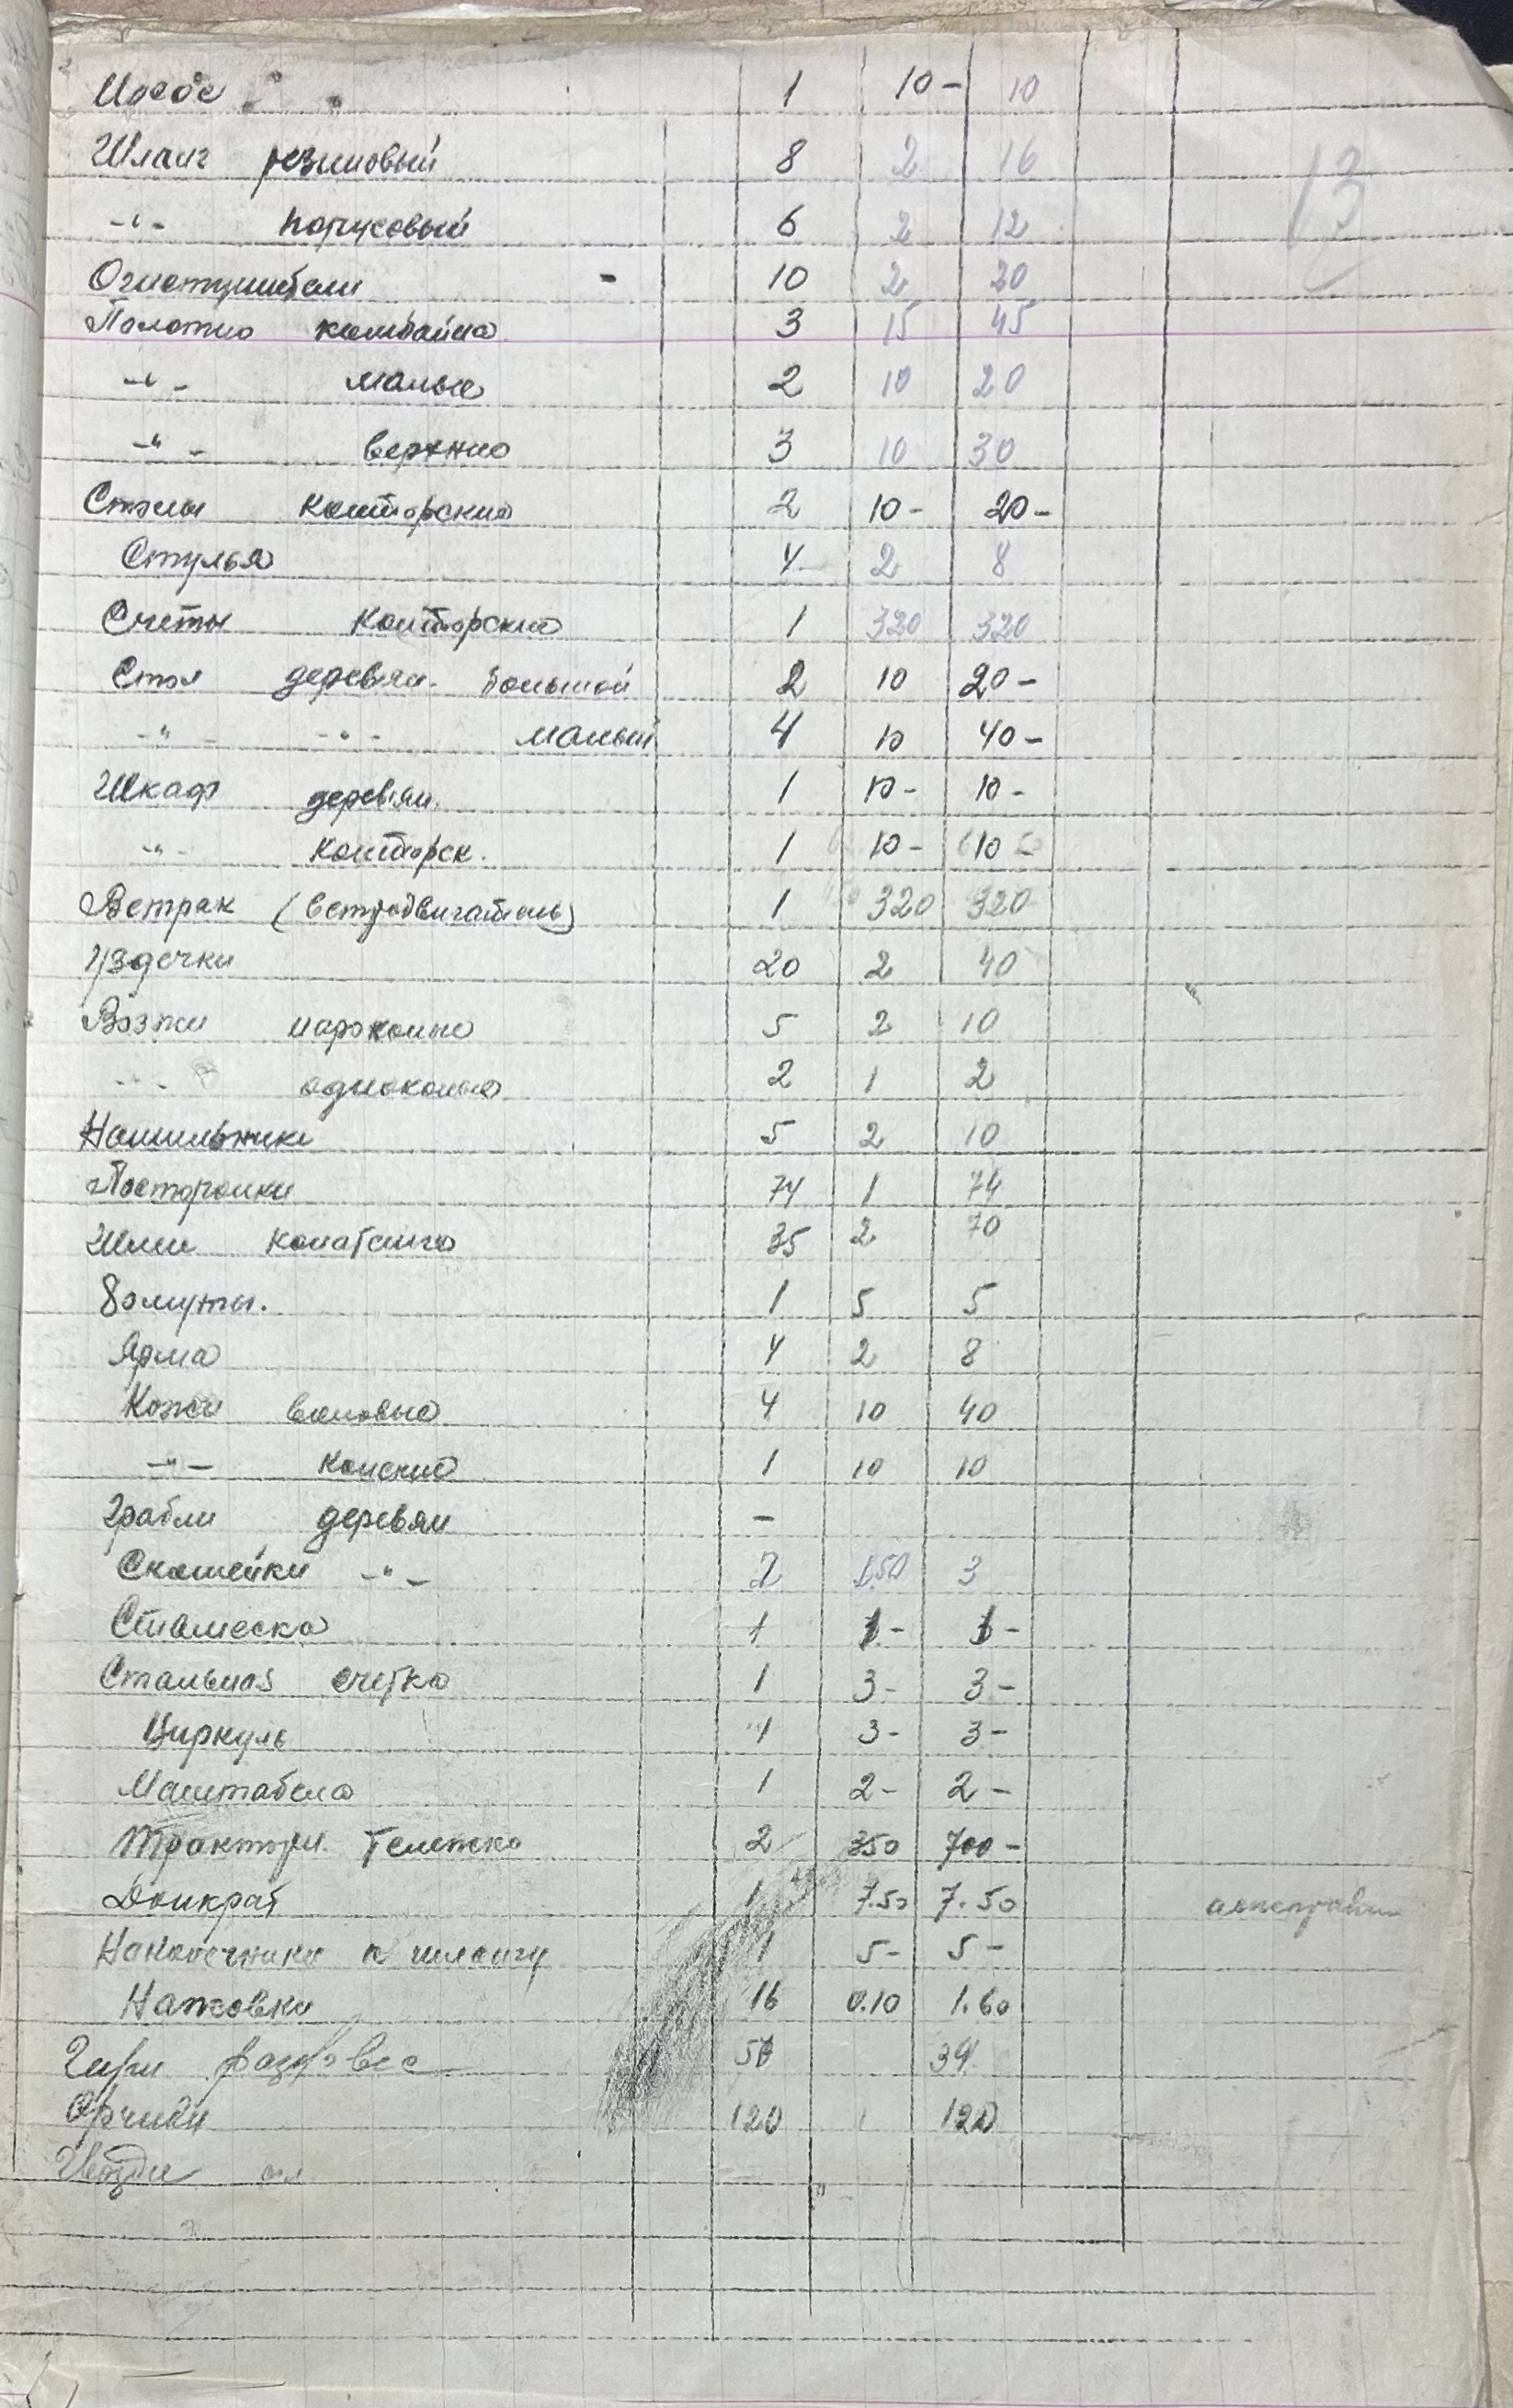 Насос 1 10- 10
Шланг резиновый 8 2 16
13
-"- Парусовый 6 2 12
Огнетушители - 10 2 20
Полотно комбайна 3 15 45
-"- малые 2 10 20
-"- верхние 3 10 30
Столы конторские 2 10- 20-
Стулья 4 2 8
Счеты конторские 1 320 320
Стол деревян. большой 2 10 20-
-"- -"- малый 4 10 40-
Шкаф деревян. 1 10- 10-
-"- конторск. 1 10- 10-
Ветрак (ветродвигатель) 1 320 320
Уздечки 20 2 40
Возжи пароконые 5 2 10
-"- одноконые 2 1 2
Нашильники 5 2 10
Посторонки 74 1 74
Шлеи 35 2 70
Хомуты. 1 5 5
Ярма 4 2 8
Кожи воловые 4 10 40
-"- конские 1 10 10
Грабли деревян -
Скамейки -"- 2 1.50 3
Стамеска 1 1- 1-
Стальная счетка 1 3- 3-
Циркуль 1 3- 3-
Маштабена 1 2- 2-
Тракторн. Тележка 2 350 700-
Домкрат 1 7.50 7.50
Наконечники к шлангу 1 5- 5-
Нажовки 16 0.10 1.60
Гири разновес 39
Орчики 120 1 120